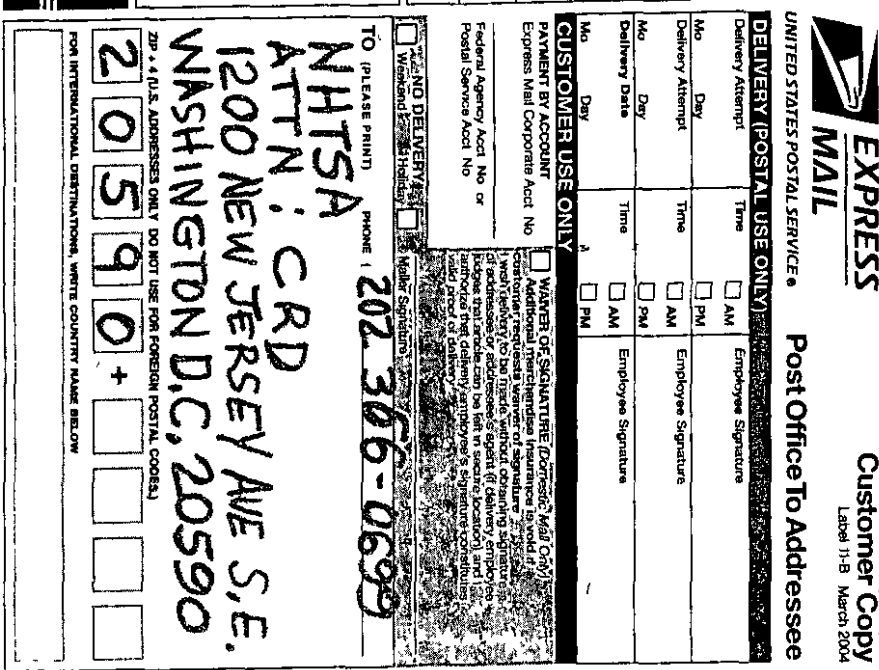 EXPRESS
MAIL
UNITED STATES POSTAL SERVICE ®
Customer Copy
Label 11-B March 2004
Post Office To Addressee
DELIVERY (POSTAL USE ONLY)
Delivery Attempt Time AM Employee Signature
Mo Day PM
Delivery Attempt Time AM Employee Signature
Mo Day PM
Delivery Date Time AM Employee Signature
Mo Day PM
CUSTOMER USE ONLY
PAYMENT BY ACCOUNT
Express Mail Corporate Acct No
Federal Agency Acct No or
Postal Service Acct No
WAIVER OF SIGNATURE (Domestic Mail Only)
Additional merchandise insurance is void if
customer requests waiver of signature
I wish delivery to be made without obtaining signature
of addressee or addressee's agent (if delivery employee
judges that article can be left in secure location) and I
authorize that delivery employee's signature constitutes
valid proof of delivery
NO DELIVERY
Weekend Holiday Mailer Signature
TO (PLEASE PRINT) PHONE ( 202 366-0699
NHTSA
ATTN: CRD
1200 NEW JERSEY AVE S.E.
WASHINGTON D.C. 20590
ZIP + 4 (U.S. ADDRESSES ONLY DO NOT USE FOR FOREIGN POSTAL CODES.)
2 0 5 9 0 +
FOR INTERNATIONAL DESTINATIONS, WRITE COUNTRY NAME BELOW